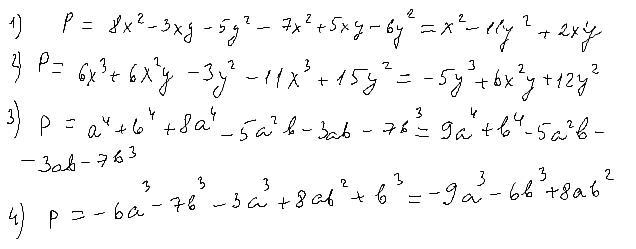 1) P = 8x² - 3xy - 5y² - 7x² + 5xy - 6y² = x² - 11y² + 2xy
2) P = 6x³ + 6x²y - 3y² - 11x³ + 15y² = -5y³ + 6x²y + 12y²
3) P = a⁴ + b⁴ + 8a⁴ - 5a²b - 3ab - 7b³ = 9a⁴ + b⁴ - 5a²b -
- 3ab - 7b³
4) P = -6a³ - 7b³ - 3a³ + 8ab² + b³ = -9a³ - 6b³ + 8ab²